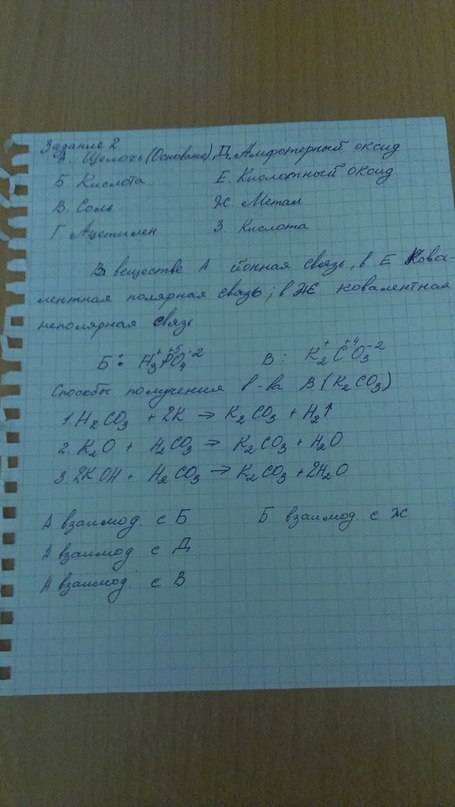 Задание 2
А. Щелочь (Основание), Д. Амфотерный оксид
Б. Кислота Е. Кислотный оксид
В. Соль Ж Метал
Г. Ацетилен З. Кислота
В веществе А йонная связь, в Е Кова-
лентная полярная связь; в Ж ковалентная
неполярная связь
Б: H₃⁺P⁺⁵O₄⁻² В: K₂⁺C⁺⁴O₃⁻²
Способы получения в-ва В (K₂CO₃)
1. H₂CO₃ + 2K → K₂CO₃ + H₂↑
2. K₂O + H₂CO₃ → K₂CO₃ + H₂O
3. 2KOH + H₂CO₃ → K₂CO₃ + 2H₂O
А взаимод. с Б Б взаимод. с Ж
А взаимод. с Д
А взаимод. с В